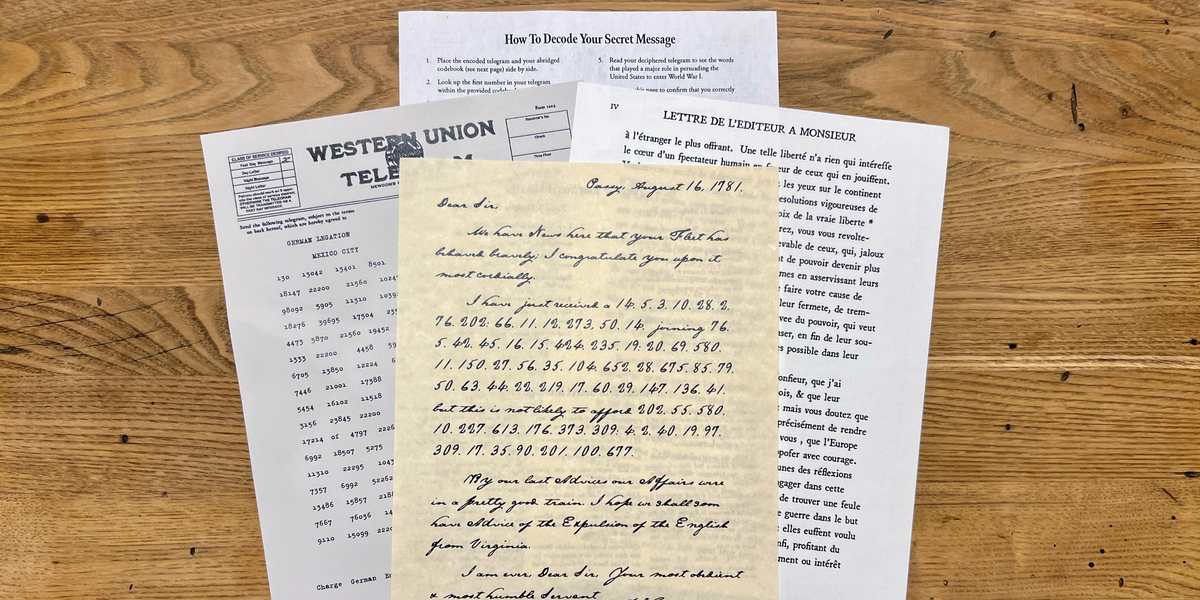 How To Decode Your Secret Message
1. Place the encoded telegram and your abridged
codebook (see next page) side by side.
2. Look up the first number in your telegram
within the provided
5. Read your deciphered telegram to see the words
that played a major role in persuading the
United States to enter World War I.
this page to confirm that you correctly
WESTERN UNION
TELE
M
Form 1204
Receiver's No.
Check
Time Filed
CLASS OF SERVICE DESIRED
Fast Day Message
Day Letter
Night Message
Night Letter
Patrons should mark an X oppo-
site the class of service desired;
OTHERWISE THE TELEGRAM
WILL BE TRANSMITTED AS A
FAST DAY MESSAGE.
Send the following telegram, subject to the terms
on back hereof, which are hereby agreed to
GERMAN LEGATION
MEXICO CITY
130 13042 13401 8501
18147 22200 21560 1024
98092 5905 11310 1039
18276 39695 17504
4473 5870 21560 19452
1333 22200 4458
6705 13850 12224
7446 21001 17388
5454 16102 11518
3156 23845 22200
17214 of 4797 2226
6992 18507 5275
11310 22295 1043
7357 6992 5226
13486 15857 218
7667 76036 14
9110 15099 222
Charge German
IV
LETTRE DE L'EDITEUR A MONSIEUR
à l'étranger le plus offrant. Une telle liberté n'a rien qui intéreſſe
le cœur d'un ſpectateur humain en eur de ceux qui en jouiſſent.
les yeux sur le continent
esolutions vigoureuses de
oix de la vraie liberte *
rez, vous vous revolte-
evable de ceux, qui, jaloux
t de pouvoir devenir plus
mes en asservissant leurs
faire votre cause de
leur fermete, de trem-
vee du pouvoir, qui veut
ser, en fin de leur sou-
s possible dans leur
onſieur, que j'ai
ois, & que leur
mais vous doutez que
précisément de rendre
vous , que l'Europe
poſer avec courage.
unes des réflexions
gager dans cette
de trouver une ſeule
guerre dans le but
elles euſſent voulu
nfi, profitant du
ment ou intérêt
Passy, August 16, 1781.
Dear Sir,
We have News here that your Fleet has
behaved bravely; I congratulate you upon it
most cordially.
I have just received a 14. 5. 3. 10. 28. 2.
76. 202: 66. 11. 12. 273. 50. 14. joining 76.
5. 42. 45. 16. 15. 424. 235. 19: 20. 69. 580.
11. 150. 27. 56. 35. 104. 652. 28. 675. 85. 79.
50. 63. 44. 22. 219. 17. 60. 29. 147. 136. 41.
but this is not likely to afford 202. 55. 580.
10. 227. 613. 176. 373. 309: 4. 2. 40. 19. 97.
309. 17. 35. 90. 201. 100. 677.
By our last Advices our Affairs were
in a pretty good train. I hope we shall soon
have Advice of the Expulsion of the English
from Virginia.
I am ever Dear Sir, Your most obedient
& most humble Servant